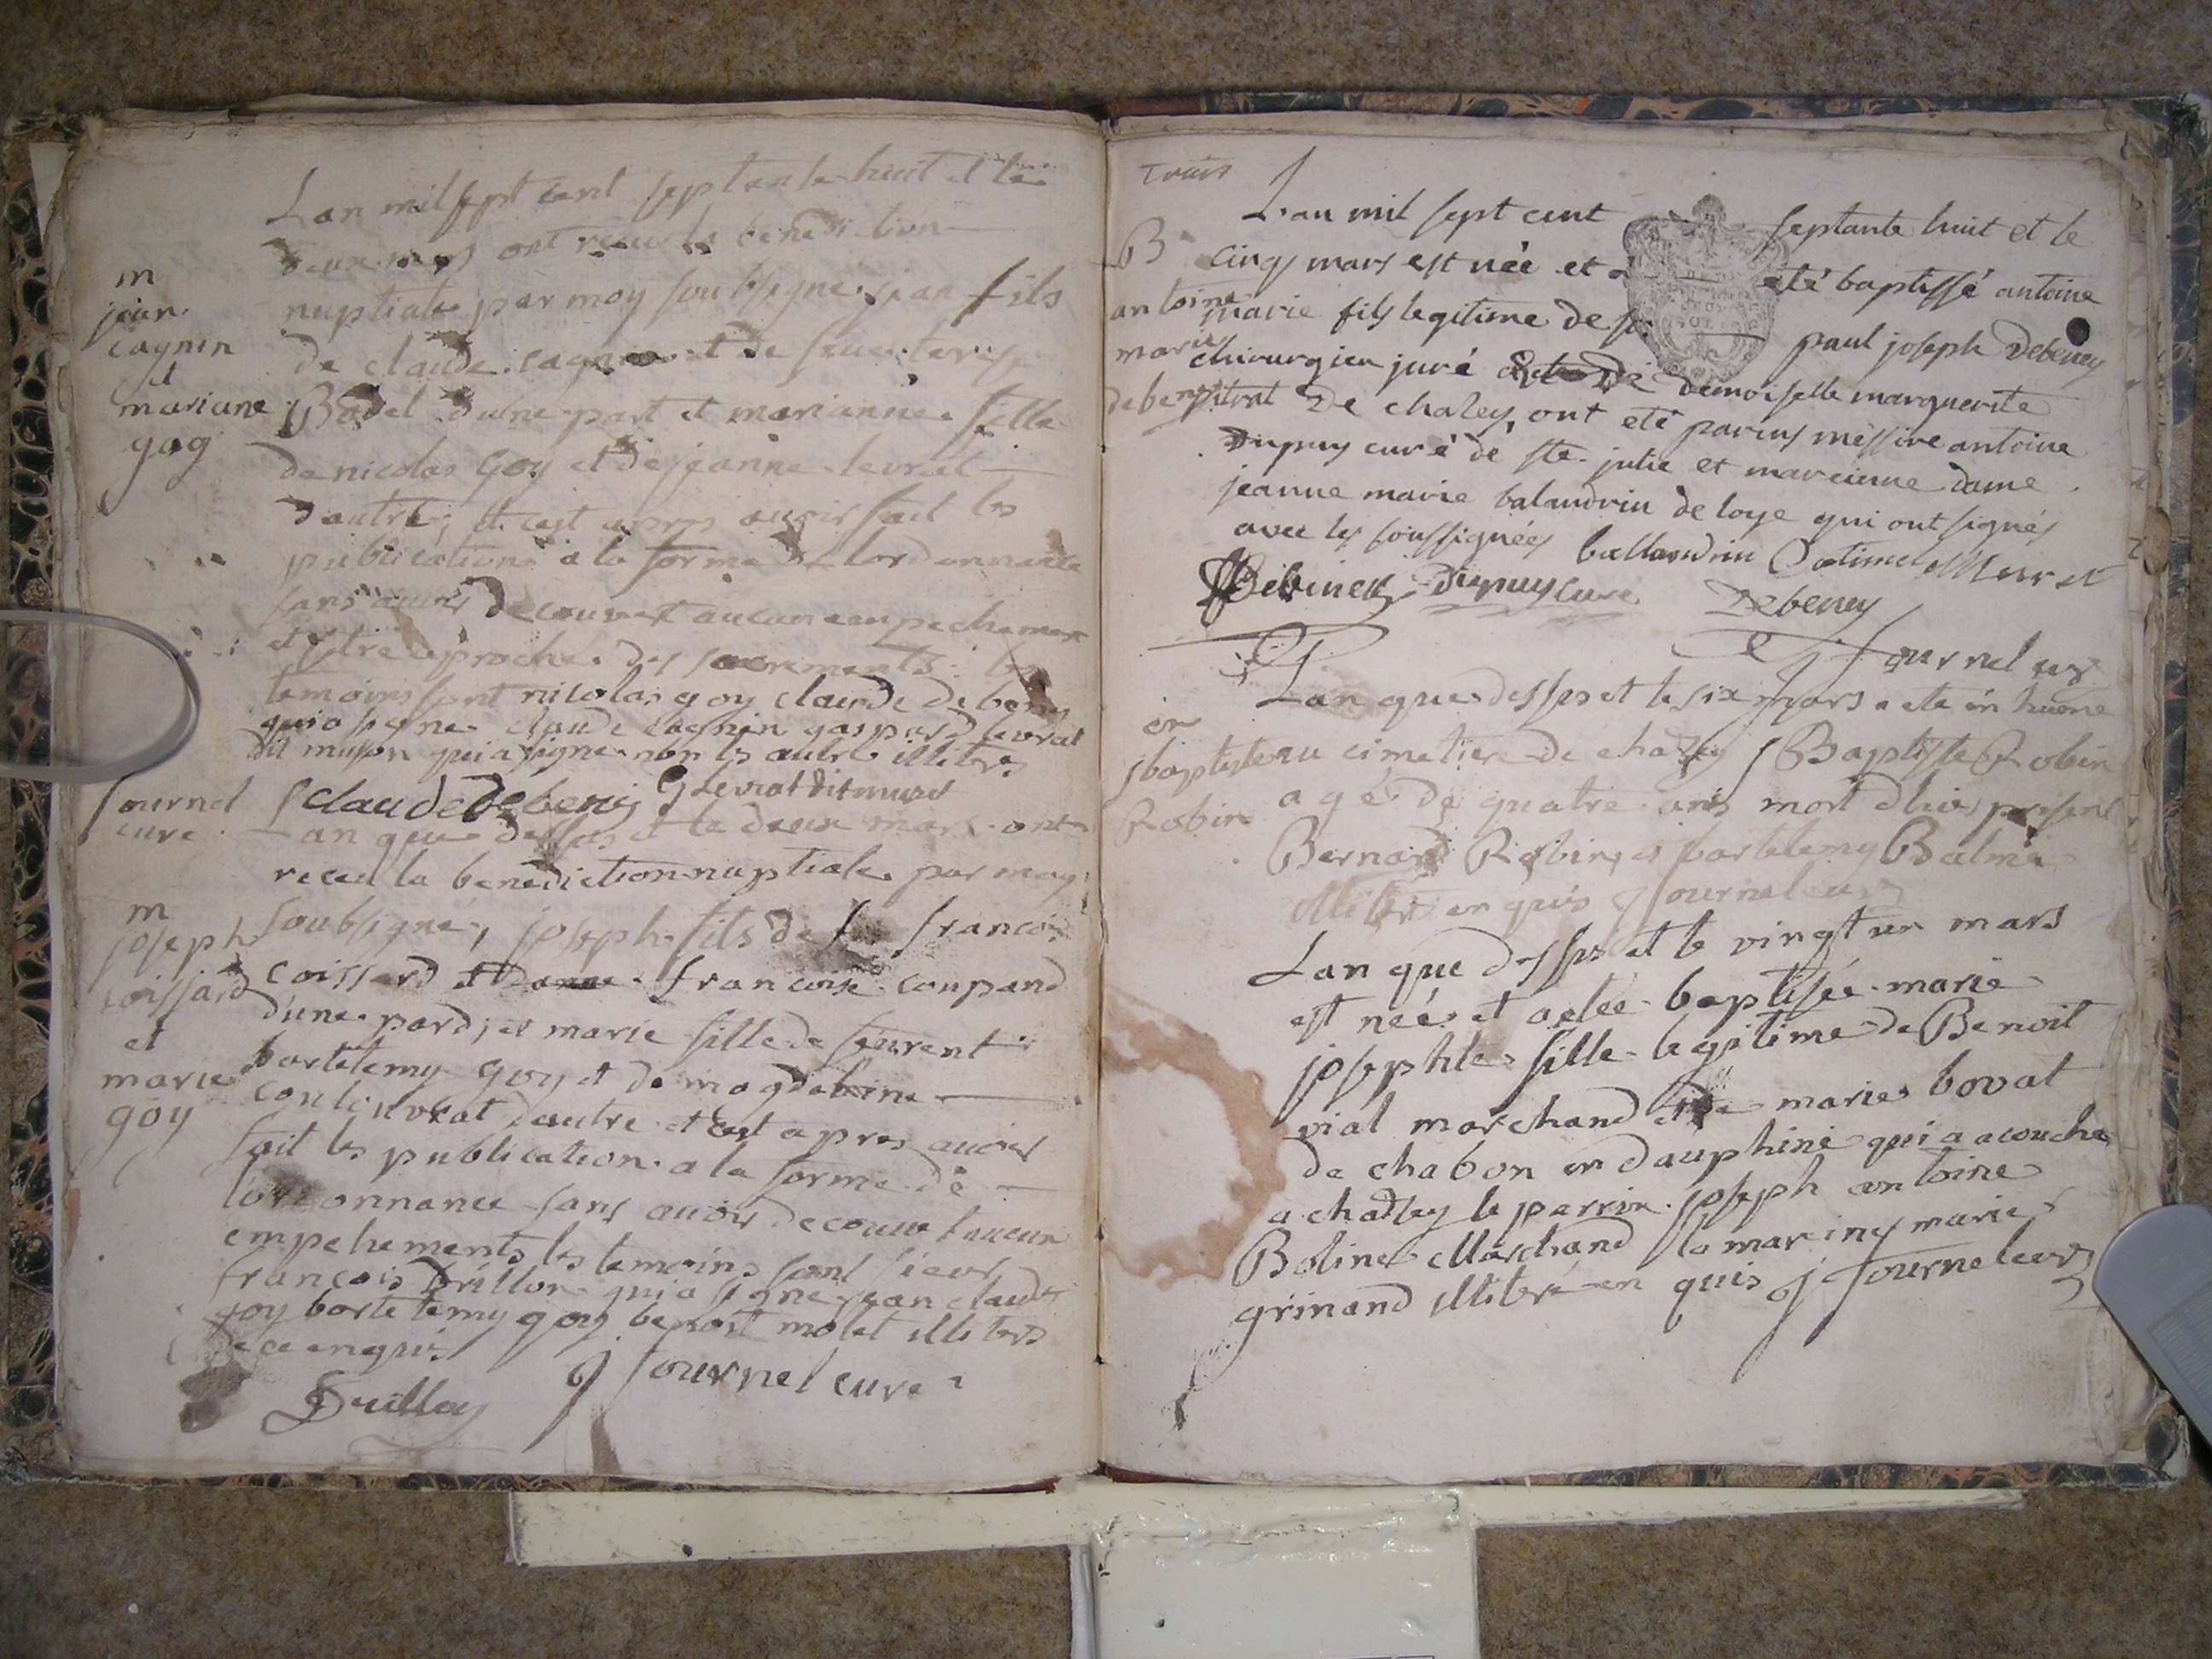 Lan mil sept cent septante huit et le
deux mars ont receu la benediction
nuptiale par moy soubsigne jean fils
de claude cagnin et de
Badel dune part et marianne fille
de nicolas Goy et de jeanne levrat
dautre, et cest apres avoir fait les
publications a la forme de lordonnance
sans avoir decouvert aucun empechement
et sêtre aproché des sacrements les
temoins sont nicolas goy claude debeney
qui a signe claude cagnin gaspard levrat
dit muson qui a signe non les autre illiteres
claude debeney G Levrat dit muson
m
jean
cagnin
et
mariane
gog
fournel
cure
Lan que dessus et le deux mars ont
receu la benediction nuptiale par moy
soubsigné, joseph fils de francois
coissard et francoise coupand
dune pard, et marie fille de
bartelemy goy et de magdeleine
convrat dautre et cest apres avoir
fait les publication a la forme de
lordonnance sans avoir decouvert aucun
empehements les temoins sont sieur
francois Drillon qui a signe jean claude
goy bartelemy goy benoit molet illiteres
de ce enquis
Drillon j fournel cure
m
joseph
coissard
et
marie
goy
trois
L'an mil sept cent septante huit et le
cinq mars est née et a eté baptissé antoine
marie fils legitime de sr paul joseph Debeney
chirurgien juré et de demoiselle marguerite
de chaley, ont eté parins messire antoine
Dupuy curé de ste julie et mareinne dame
jeanne marie balandrin de loye qui ont signés
avec les soussignées ballandrin
Dupuy cure Debeney
fournel cure
B
antoine
marie
debeney
Lan que dessus et le six mars a ete en humé
au cimetiere de chazey Baptiste Robin
agé de quatre ans mort dhier present
Bernard Robin et bartelemy Balme
illiteres en quis j fournel cure
en
baptiste
Robin
Lan que dessus et le vingt un mars
est née et a etée baptisée marie
josephte fille legitime de Benoit
vial marchand et de marie bovat
de chabon en dauphiné qui a acouche
a chazey le parrin joseph antoine
Boline Marchand la marine marie
grinand illiteré en quis j fournel cure